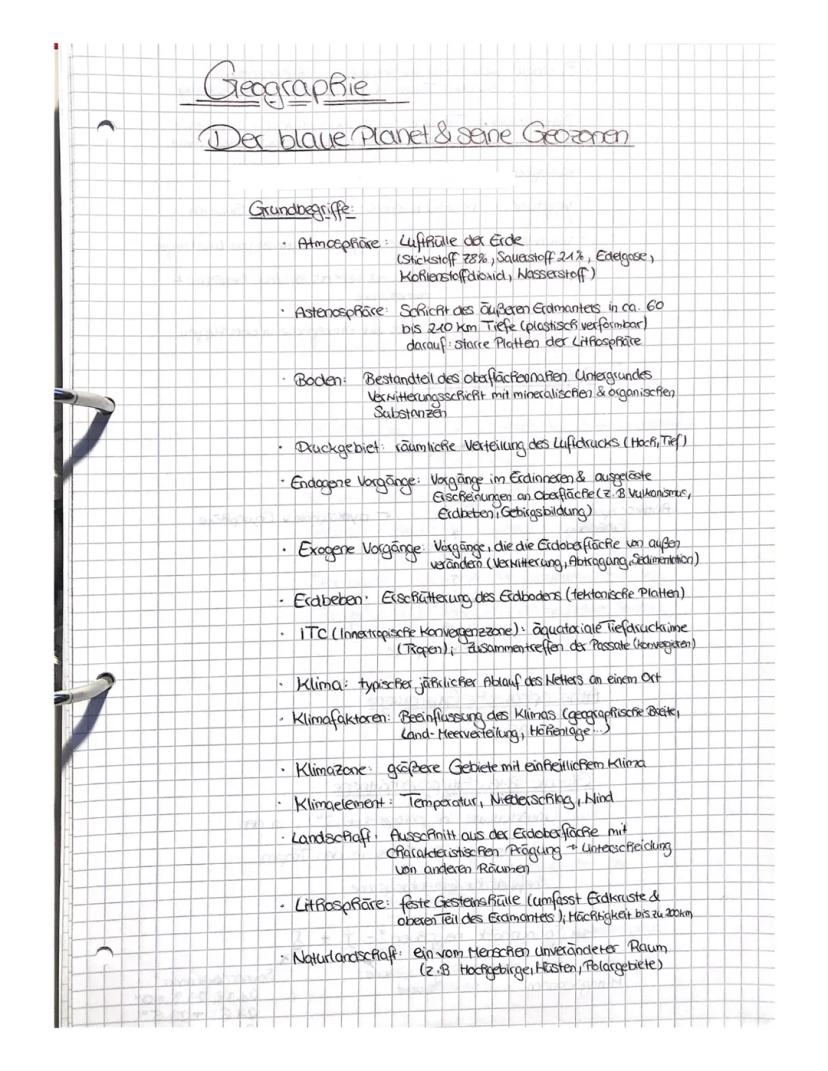 Geographie
Der blaue Planet & seine Geozonen
Grundbegriffe:
· Atmosphäre: Lufthülle der Erde
(Stickstoff 78%, Sauerstoff 21%, Edelgase,
Kohlenstoffdioxid, Wasserstoff)
· Astenosphäre: Schicht des äußeren Erdmantels in ca. 60
bis 210 km Tiefe (plastisch verformbar)
darauf: starre Platten der Lithosphäre
· Boden: Bestandteil des oberflächennahen Untergrundes
Verwitterungsschicht mit mineralischen & organischen
Substanzen
· Druckgebiet: räumliche Verteilung des Luftdrucks (Hoch, Tief)
· Endogene Vorgänge: Vorgänge im Erdinneren & ausgelöste
Erscheinungen an Oberfläche (z.B Vulkanismus,
Erdbeben, Gebirgsbildung)
· Exogene Vorgänge: Vorgänge, die die Erdoberfläche von außen
verändern (Verwitterung, Abtragung, Sedimentation)
· Erdbeben: Erschütterung des Erdbodens (tektonische Platten)
· ITC (Innertropische Konvergenzzone): äquatoriale Tiefdruckrinne
(Tropen); Zusammentreffen der Passate (konvegieren)
· Klima: typischer jährlicher Ablauf des Wetters an einem Ort
· Klimafaktoren: Beeinflussung des Klimas (geographische Breite,
Land-Meerverteilung, Höhenlage...)
· Klimazone: größere Gebiete mit einheitlichem Klima
· Klimaelement: Temperatur, Niederschlag, Wind
· Landschaft: Ausschnitt aus der Erdoberfläche mit
charakteristischen Prägung → Unterscheidung
von anderen Räumen
· Lithosphäre: feste Gesteinshülle (umfasst Erdkruste &
oberen Teil des Erdmantels); Mächtigkeit bis zu 200km
· Naturlandschaft: ein vom Menschen unveränderter Raum
(z.B Hochgebirge, Küsten, Polargebiete)